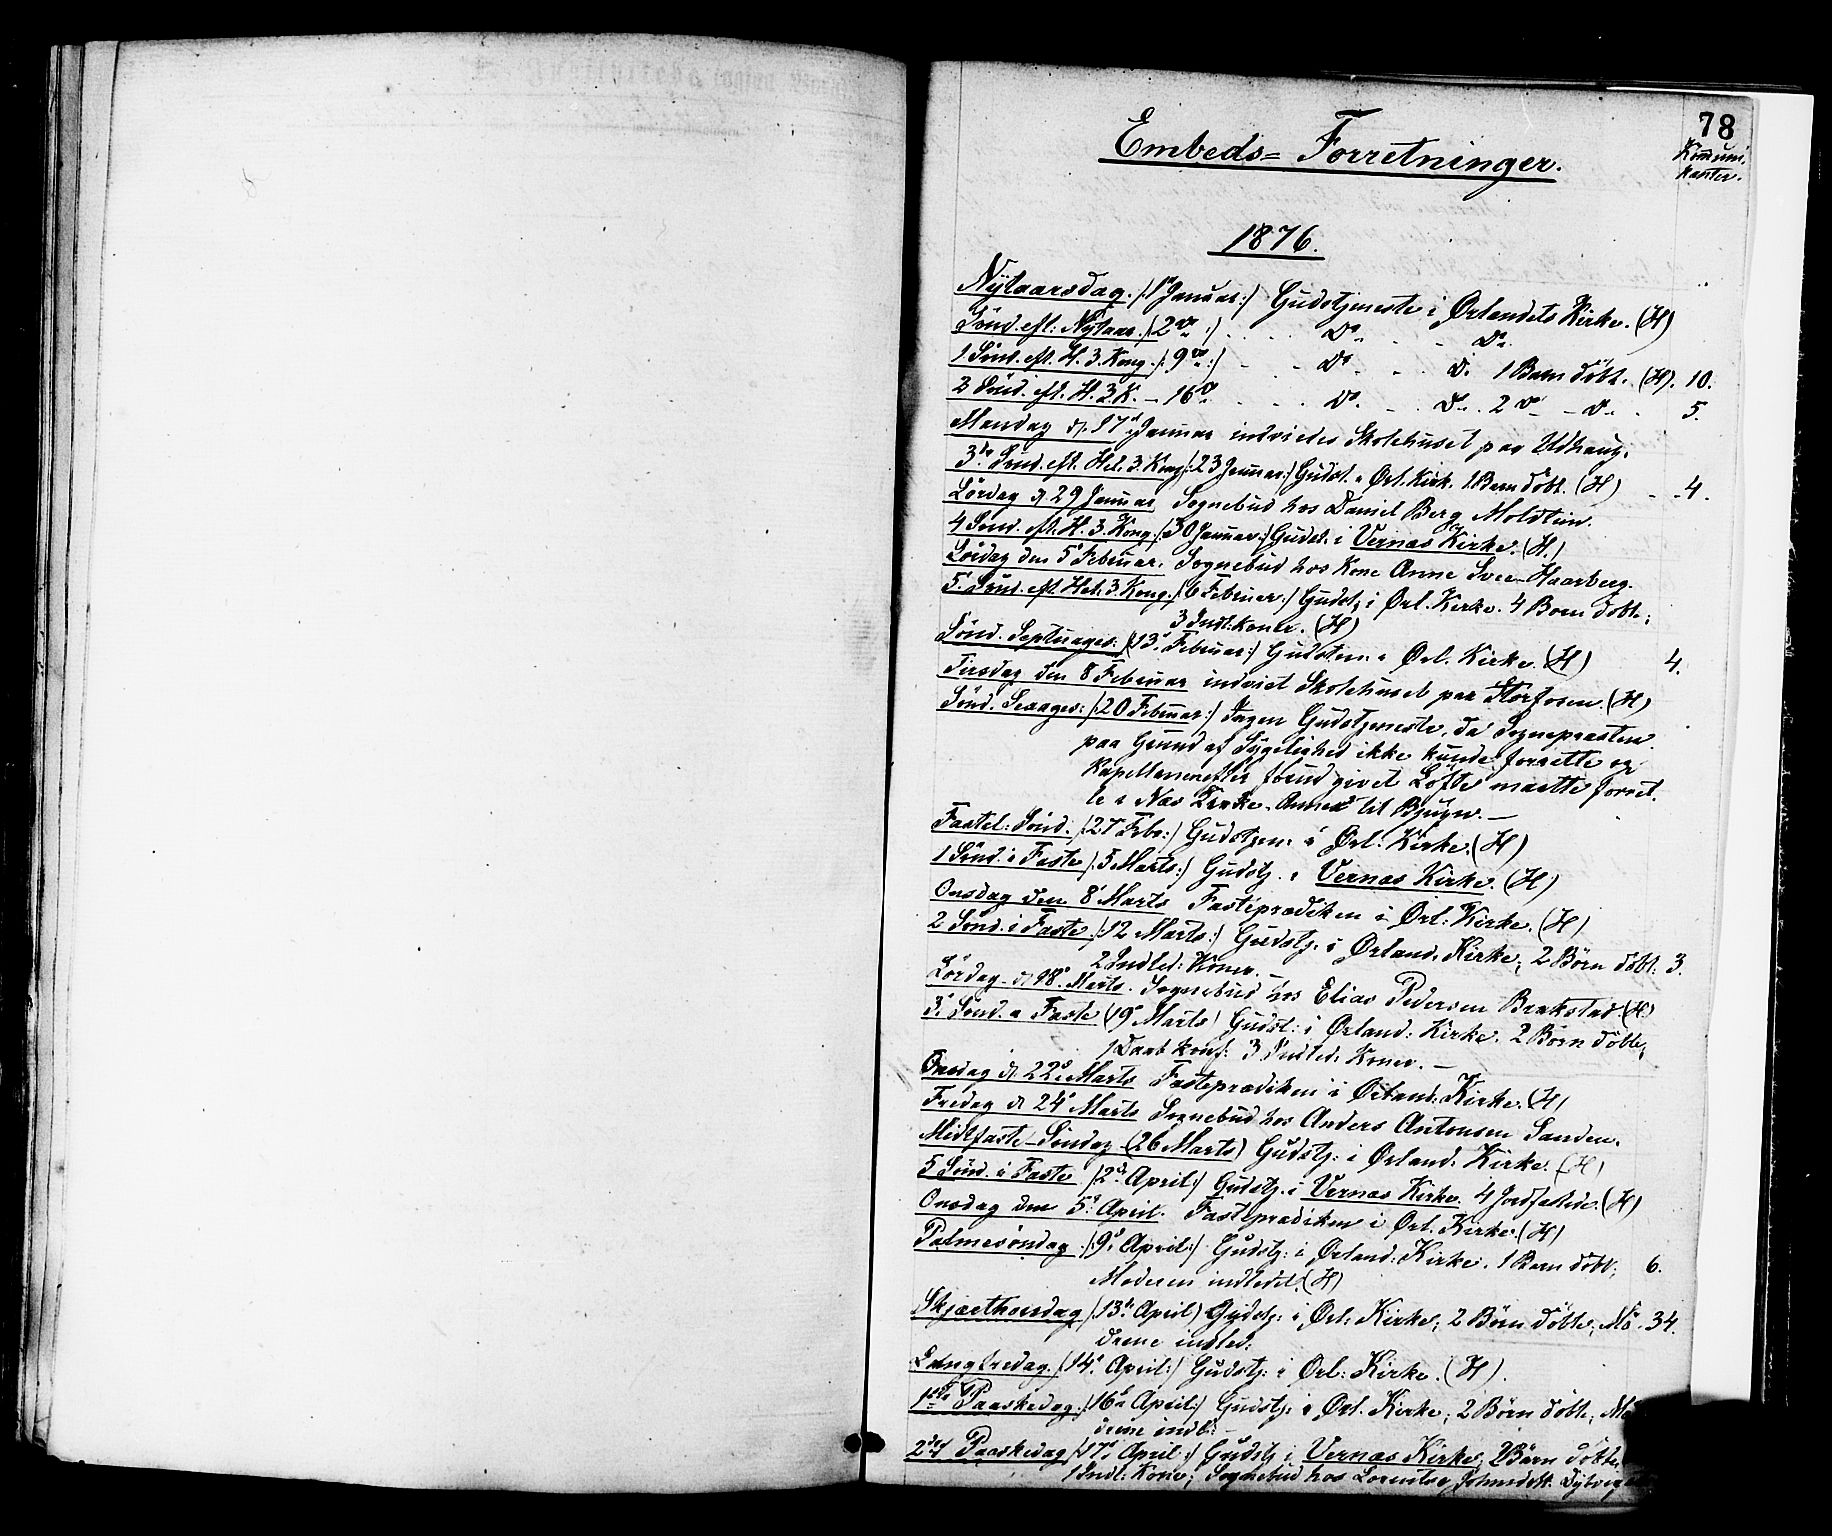 78
Kommuni-
kanter.
Embeds= Forretninger.
1876.
Nytaarsdag. /:1ste Januar:/ Gudstjeneste i Ørlandets Kirke. (H)
Sønd. eft: Nytaar /:2den:/ . . . . Do . . . Do
1 Sønd. eft. H. 3. Kong. /:9de:/ - - Do . . . D. 1 Barn døbt. (H). 10.
2 Sønd. eft. H. 3 K. - 16de . . . Do. - . Do. 2 Do - D. . 5.
Mandag d. 17d Januar indviedes Skolehuset paa Udhaug.
3die Sønd. eft. Hel. 3. Kong /:23 Januar:/ Gudst. i Ørl. Kirk. 1 Barn døbt. (H) - - 4.
Lørdag d. 29 Januar Sognebud hos Daniel Berg Moldtun.
4 Sønd. eft. H. 3. Kong. /:30 Januar:/ Gudst. i Vernæs Kirke. (H.)
Lørdag den 5' Februar. Sognebud hos Kone Anne Svee-Haarberg.
5. Sønd. eft. Hel. 3. Kong. /:6 Februar:/ Gudstj i Ørl. Kirke. 4 Børn døbt;
3 Indl: koner. (H)
Sønd. Septuages: /:13' Februar:/ Gudstjen. i Ørl. Kirke. (H) 4.
Tirsdag den 8 Februar indviet Skolehuset paa Storfosen. (H)
Sønd. Sexages: /:20 Februar:/ Ingen Gudstjeneste, da Sognepræsten
paa Grund af Sygelighed ikke kunde forrette og
Kapellanen efter forud givet Løfte maatte forret-
te i Næs Kirke, Annex til Bjugn. -
Fastel: Sønd. /:27 Febr:/ Gudstjen. i Ørl. Kirke. (H)
1 Sønd. i Faste /:5 Marts:/ Gudstj. i Vernæs Kirke. (H)
Onsdag den 8' Marts Fasteprædiken i Ørl: Kirke. (H)
2 Sønd. i Faste. /:12 Marts:/ Gudstj. i Ørland. Kirke; 2 Børn døbt: 3.
2 Indled: Koner. -
Lørdag d. 18' Marts. Sognebud hos Elias Pedersen Brækstad. (H)
3' Sønd. i Faste (19' Marts) Gudst: i Ørland: Kirke. 2 Børn døbte;
1 Daab konf: 3 Indled. Koner. -
Onsdag d. 22' Marts Fasteprædiken i Ørland: Kirke. (H)
Fredag d. 24' Marts Sognebud hos Anders Antonsen Sanden.
Midtfaste-Søndag (26 Marts) Gudstj: i Ørland. Kirke. (H)
5 Sønd. i Faste /:2d April:/ Gudstj. i Vernæs Kirke. 4 Jordfæstede. (H)
Onsdag den 5' April. Fasteprædiken i Ørl. Kirke. (H)
Palmesøndag /:9' April:/ Gudstj: i Ørland: Kirke. 1 Barn døbt; 6.
Moderen indledet. (H)
Skjærthorsdag /:13de April) Gudstj: i Ørl: Kirke; 2 Børn døbte; Mø- 34.
drene indled:
Langfredag. /:14' April:/ Gudstj: i Ørl: Kirke. (H).
1ste Paaskedag. /:16d April:/ Gudstj. i Ørl. Kirke; 2 Børn døbte; Mø
drene indl: -
2den Paaskedag /:17' April:/ Gudstj i Vernæs Kirke; 2 Børn døbte.
1 Indl: Kone; Sognebud hos Lorentse Johnsdatt. Dybvig